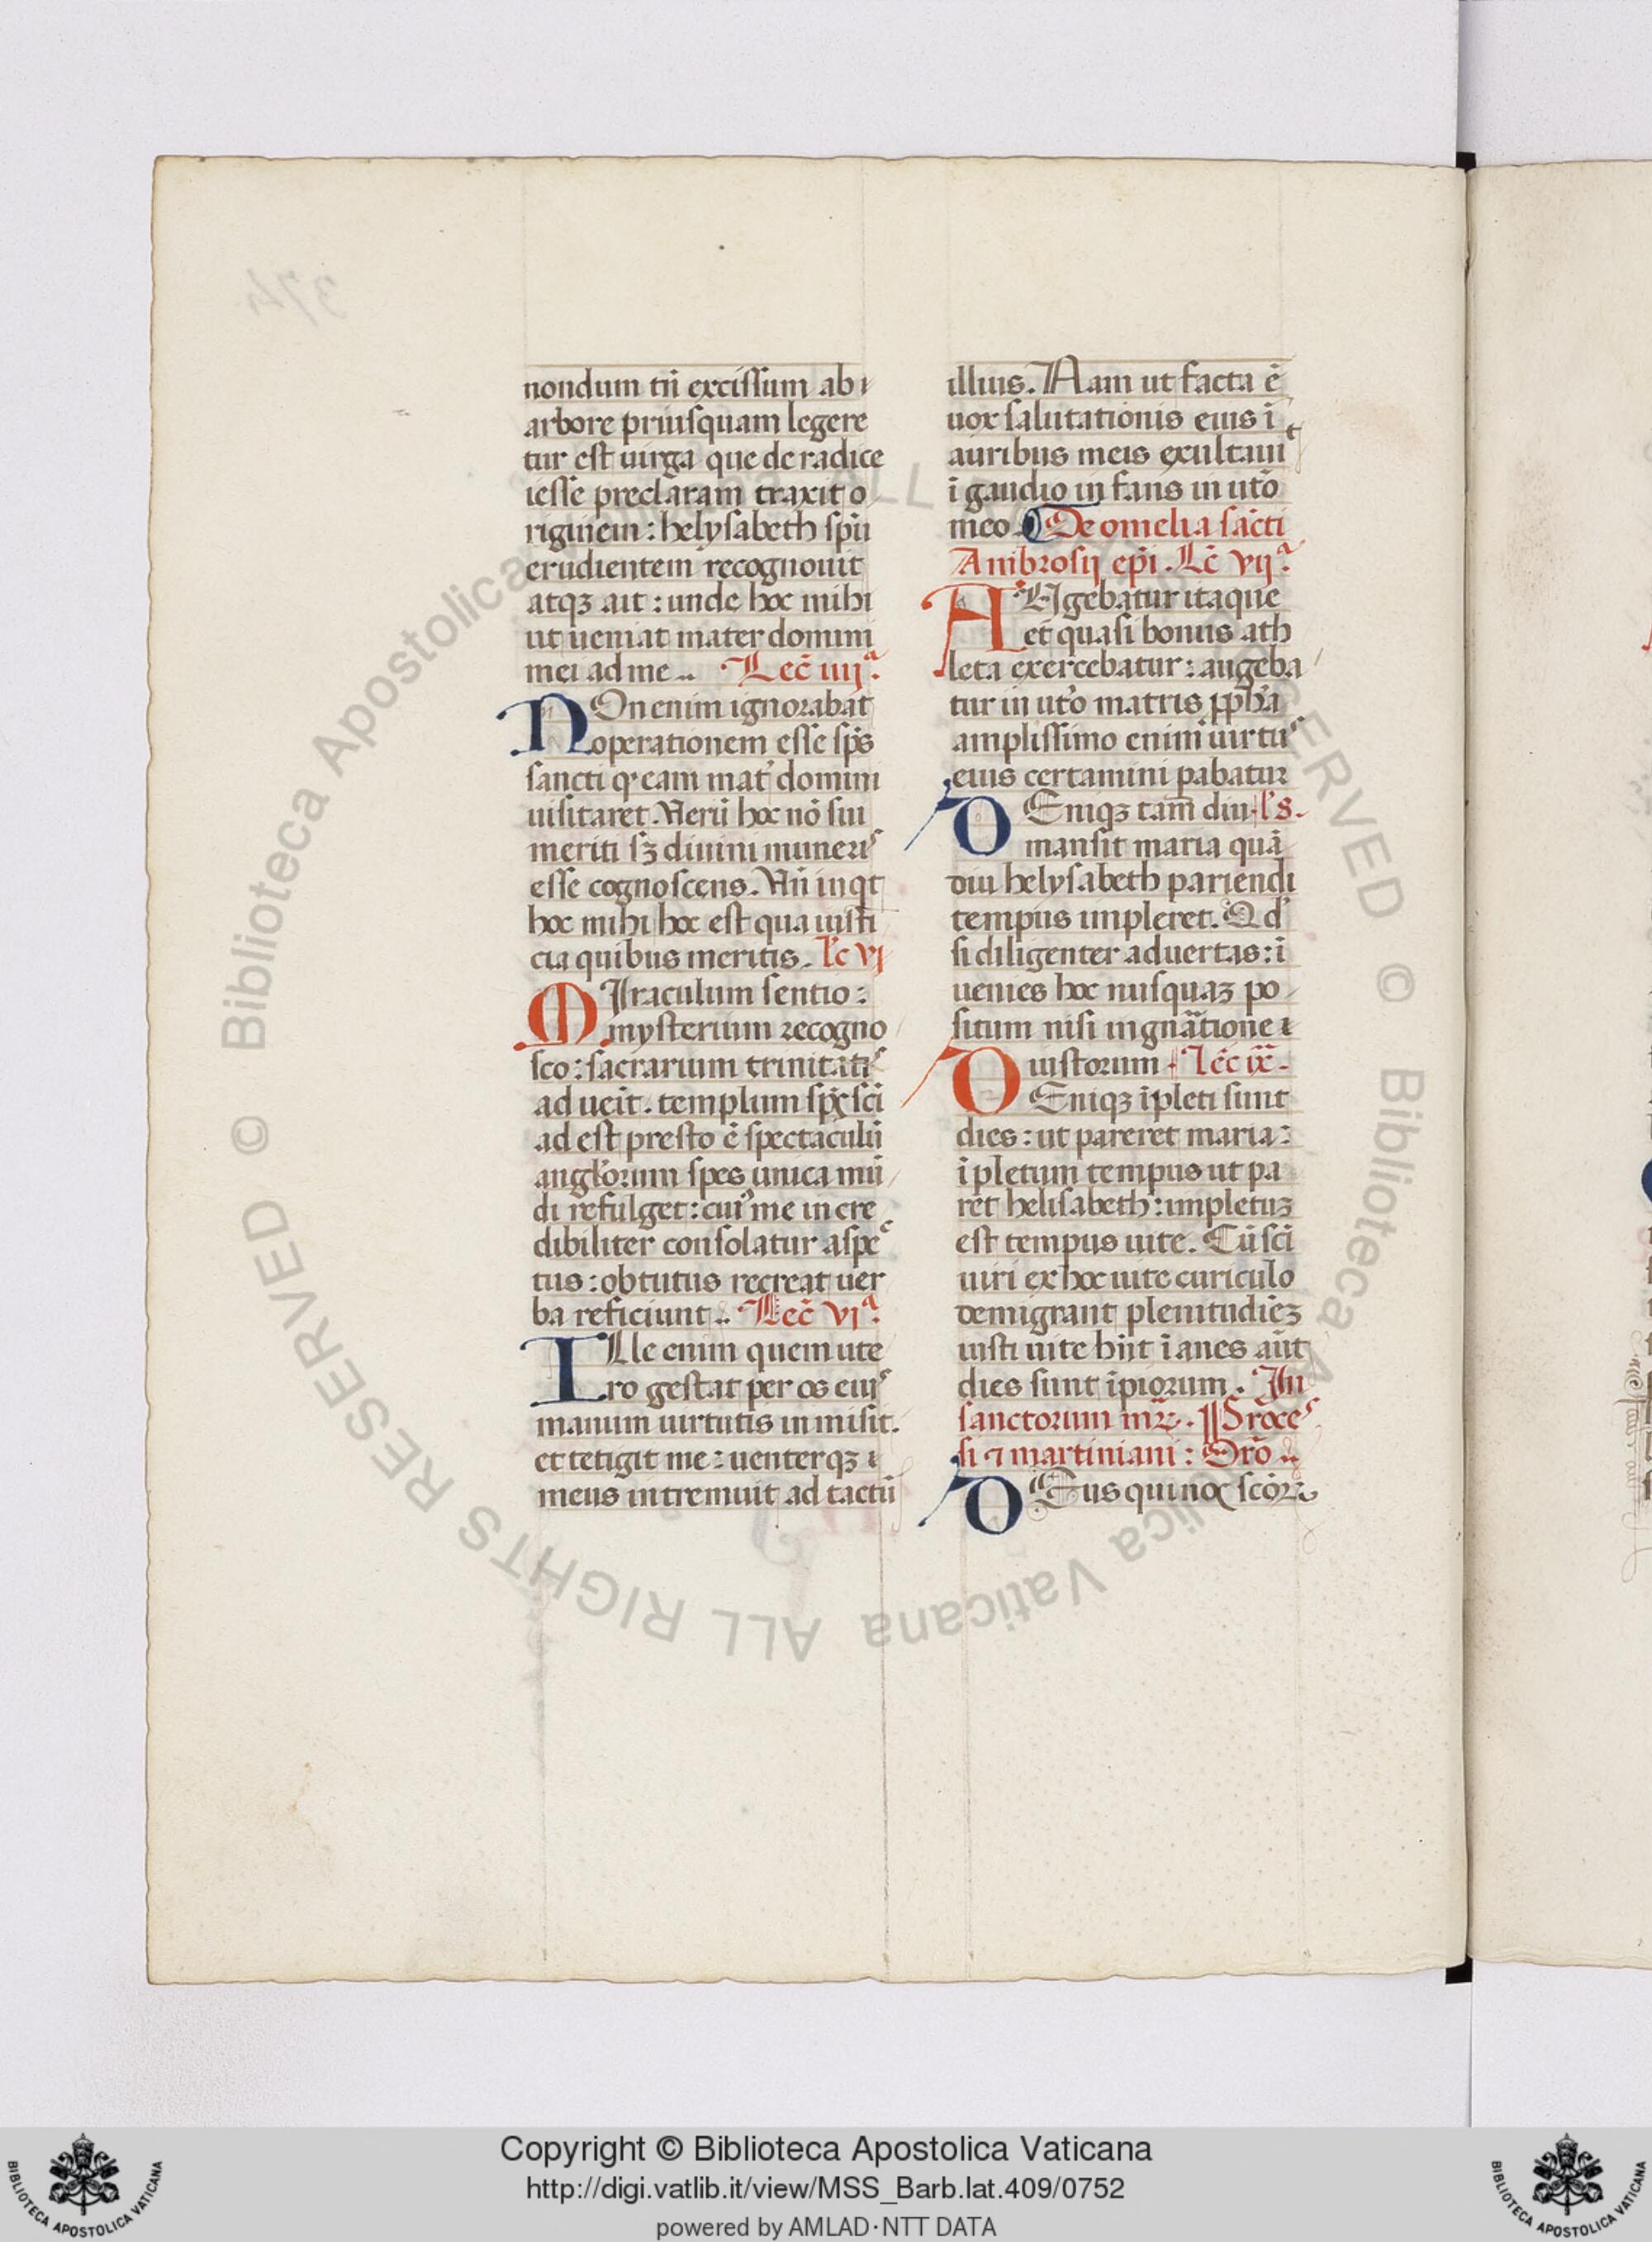 nondum tn̄ excissum ab
arbore priusquam legere
tur est uirga que de radice
iesse preclaram traxit o
riginem : helysabeth spū
erudientem recognouit
atqꝫ ait : unde hoc mihi
ut ueniat mater domini
mei ad me .. Lec̄ iiij.ª
NOn enim ignorabat
operationem esse sp̄s
sancti qͥ eam mat̓ domini
uisitaret. Ueru᷑ hoc nō sui
meriti sꝫ diuini muneris
esse cognoscens. Un̄ inqt
hoc mihi hoc est qua iusti
cia quibus meritis. lc̄ vj
MIraculum sentio :
mysterium recogno
sco : sacrarium trinitatis
ad ueīt . templum spc̄ sc̄i
ad est presto ē spectaculū
angl̓orum spes unica mū
di refulget : cuiꝰ me in cre
dibiliter consolatur aspec
tus : obtutus recreat uer
ba reficiunt .. Lec̄ vj.ª
ILle enim quem ute
ro gestat per os eius
manum uirtutis in misit.
et tetigit me : uenterqꝫ
meus intremuit ad tactū
illius. Nam ut facta ē
uox salutationis eius ī
auribus meis exultauit
ī gaudio in fans in ut̓o
meo . De omelia sāncti
Ambrosij ep̄i . Lc̄ vij.ª
AUgebatur itaque
et quasi bonus ath
leta exercebatur : augeba
tur in ut̓o matris ꝓph̄a
amplissimo enim uirtus
eius certamini ꝑabatur
DEniqꝫ tam diu l̓ 8.
mansit maria quā
diu helysabeth pariendi
tempus impleret. Qd̓
si diligenter aduertas : ī
uenies hoc nusquaꝫ po
situm nisi in gnātione
iustorum . lec̄ ix̄ .
DEniqꝫ īpleti sunt
dies : ut pareret maria :
ī pletum tempus ut pa
ret helisabeth : impletuꝫ
est tempus uite. Cū sc̄i
uiri ex hoc uite curiculo
demigrant plenitudiēꝫ
iusti uite hn̄t ī anes aūt
dies sunt īpiorum . In
sanctorum mr̄ꝝ . Proces
si ⁊ martiniani : Orō ..
DEus qui nox̄ sc̄orꝫ
Copyright © Biblioteca Apostolica Vaticana
http://digi.vatlib.it/view/MSS_Barb.lat.409/0752
powered by AMLAD·NTT DATA